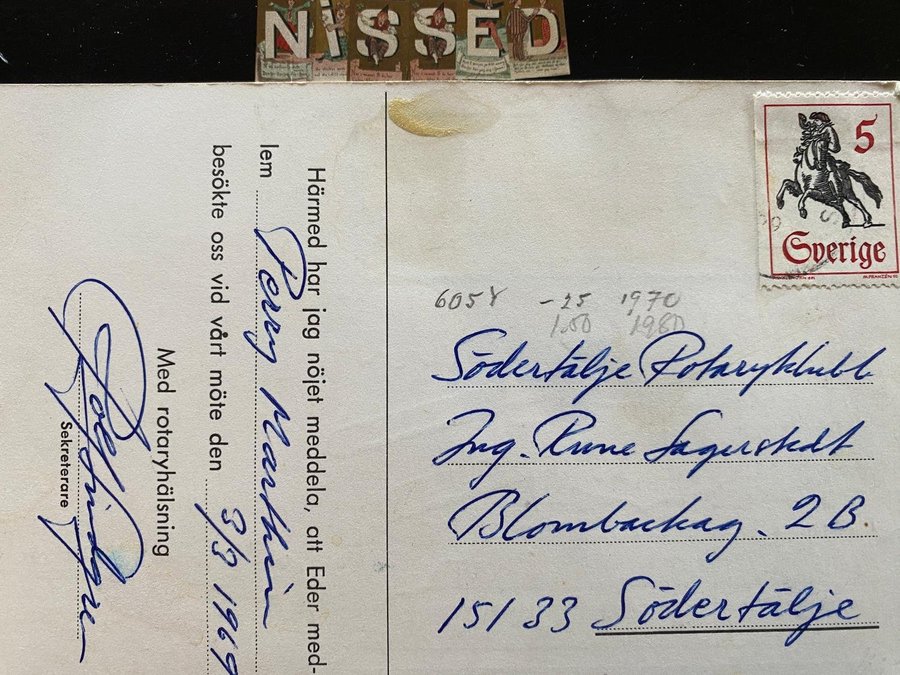 NISSED
5
Sverige
6058 -25 1970
1.50 1980
Södertälje Rotaryklubb
Ing. Rune Lagerstedt
Blombackag. 2B
151 33 Södertälje
Härmed har jag nöjet meddela, att Eder med-
lem Perry Marthin
besökte oss vid vårt möte den 3/3 1969
Med rotaryhälsning
Sekreterare